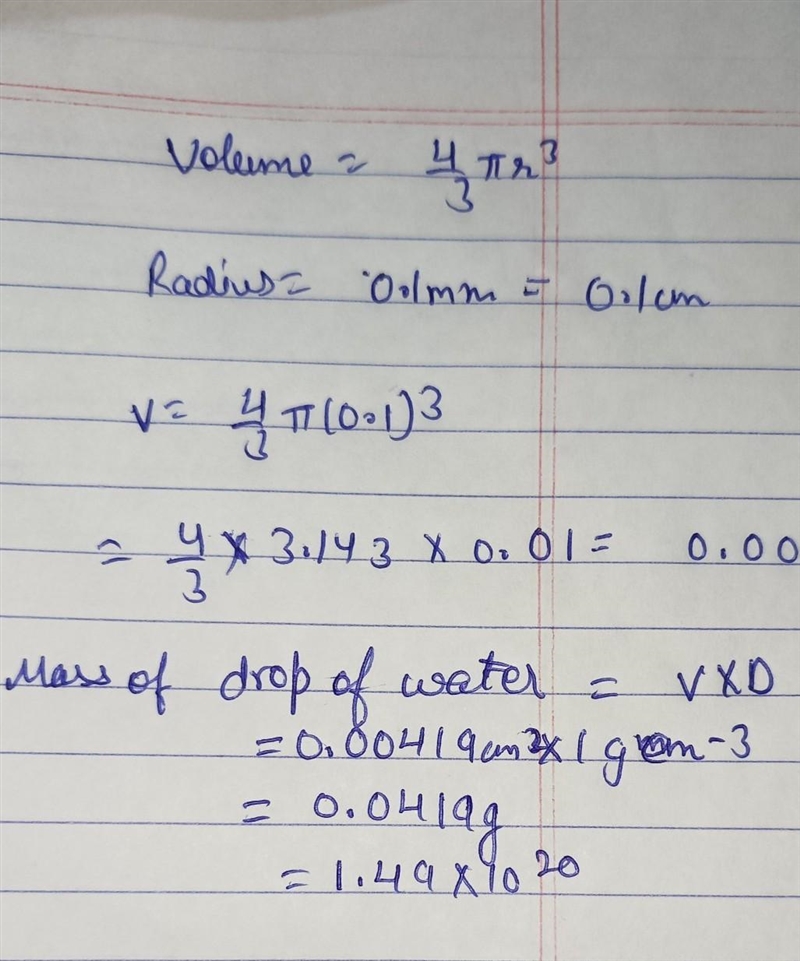 Volume = 4/3 πr³
Radius = 0.1mm = 0.1cm
V = 4/3 π(0.1)³
= 4/3 × 3.143 × 0.01 = 0.00
Mass of drop of water = V×D
= 0.00419cm³×1g cm-3
= 0.0419g
= 1.49×10²⁰